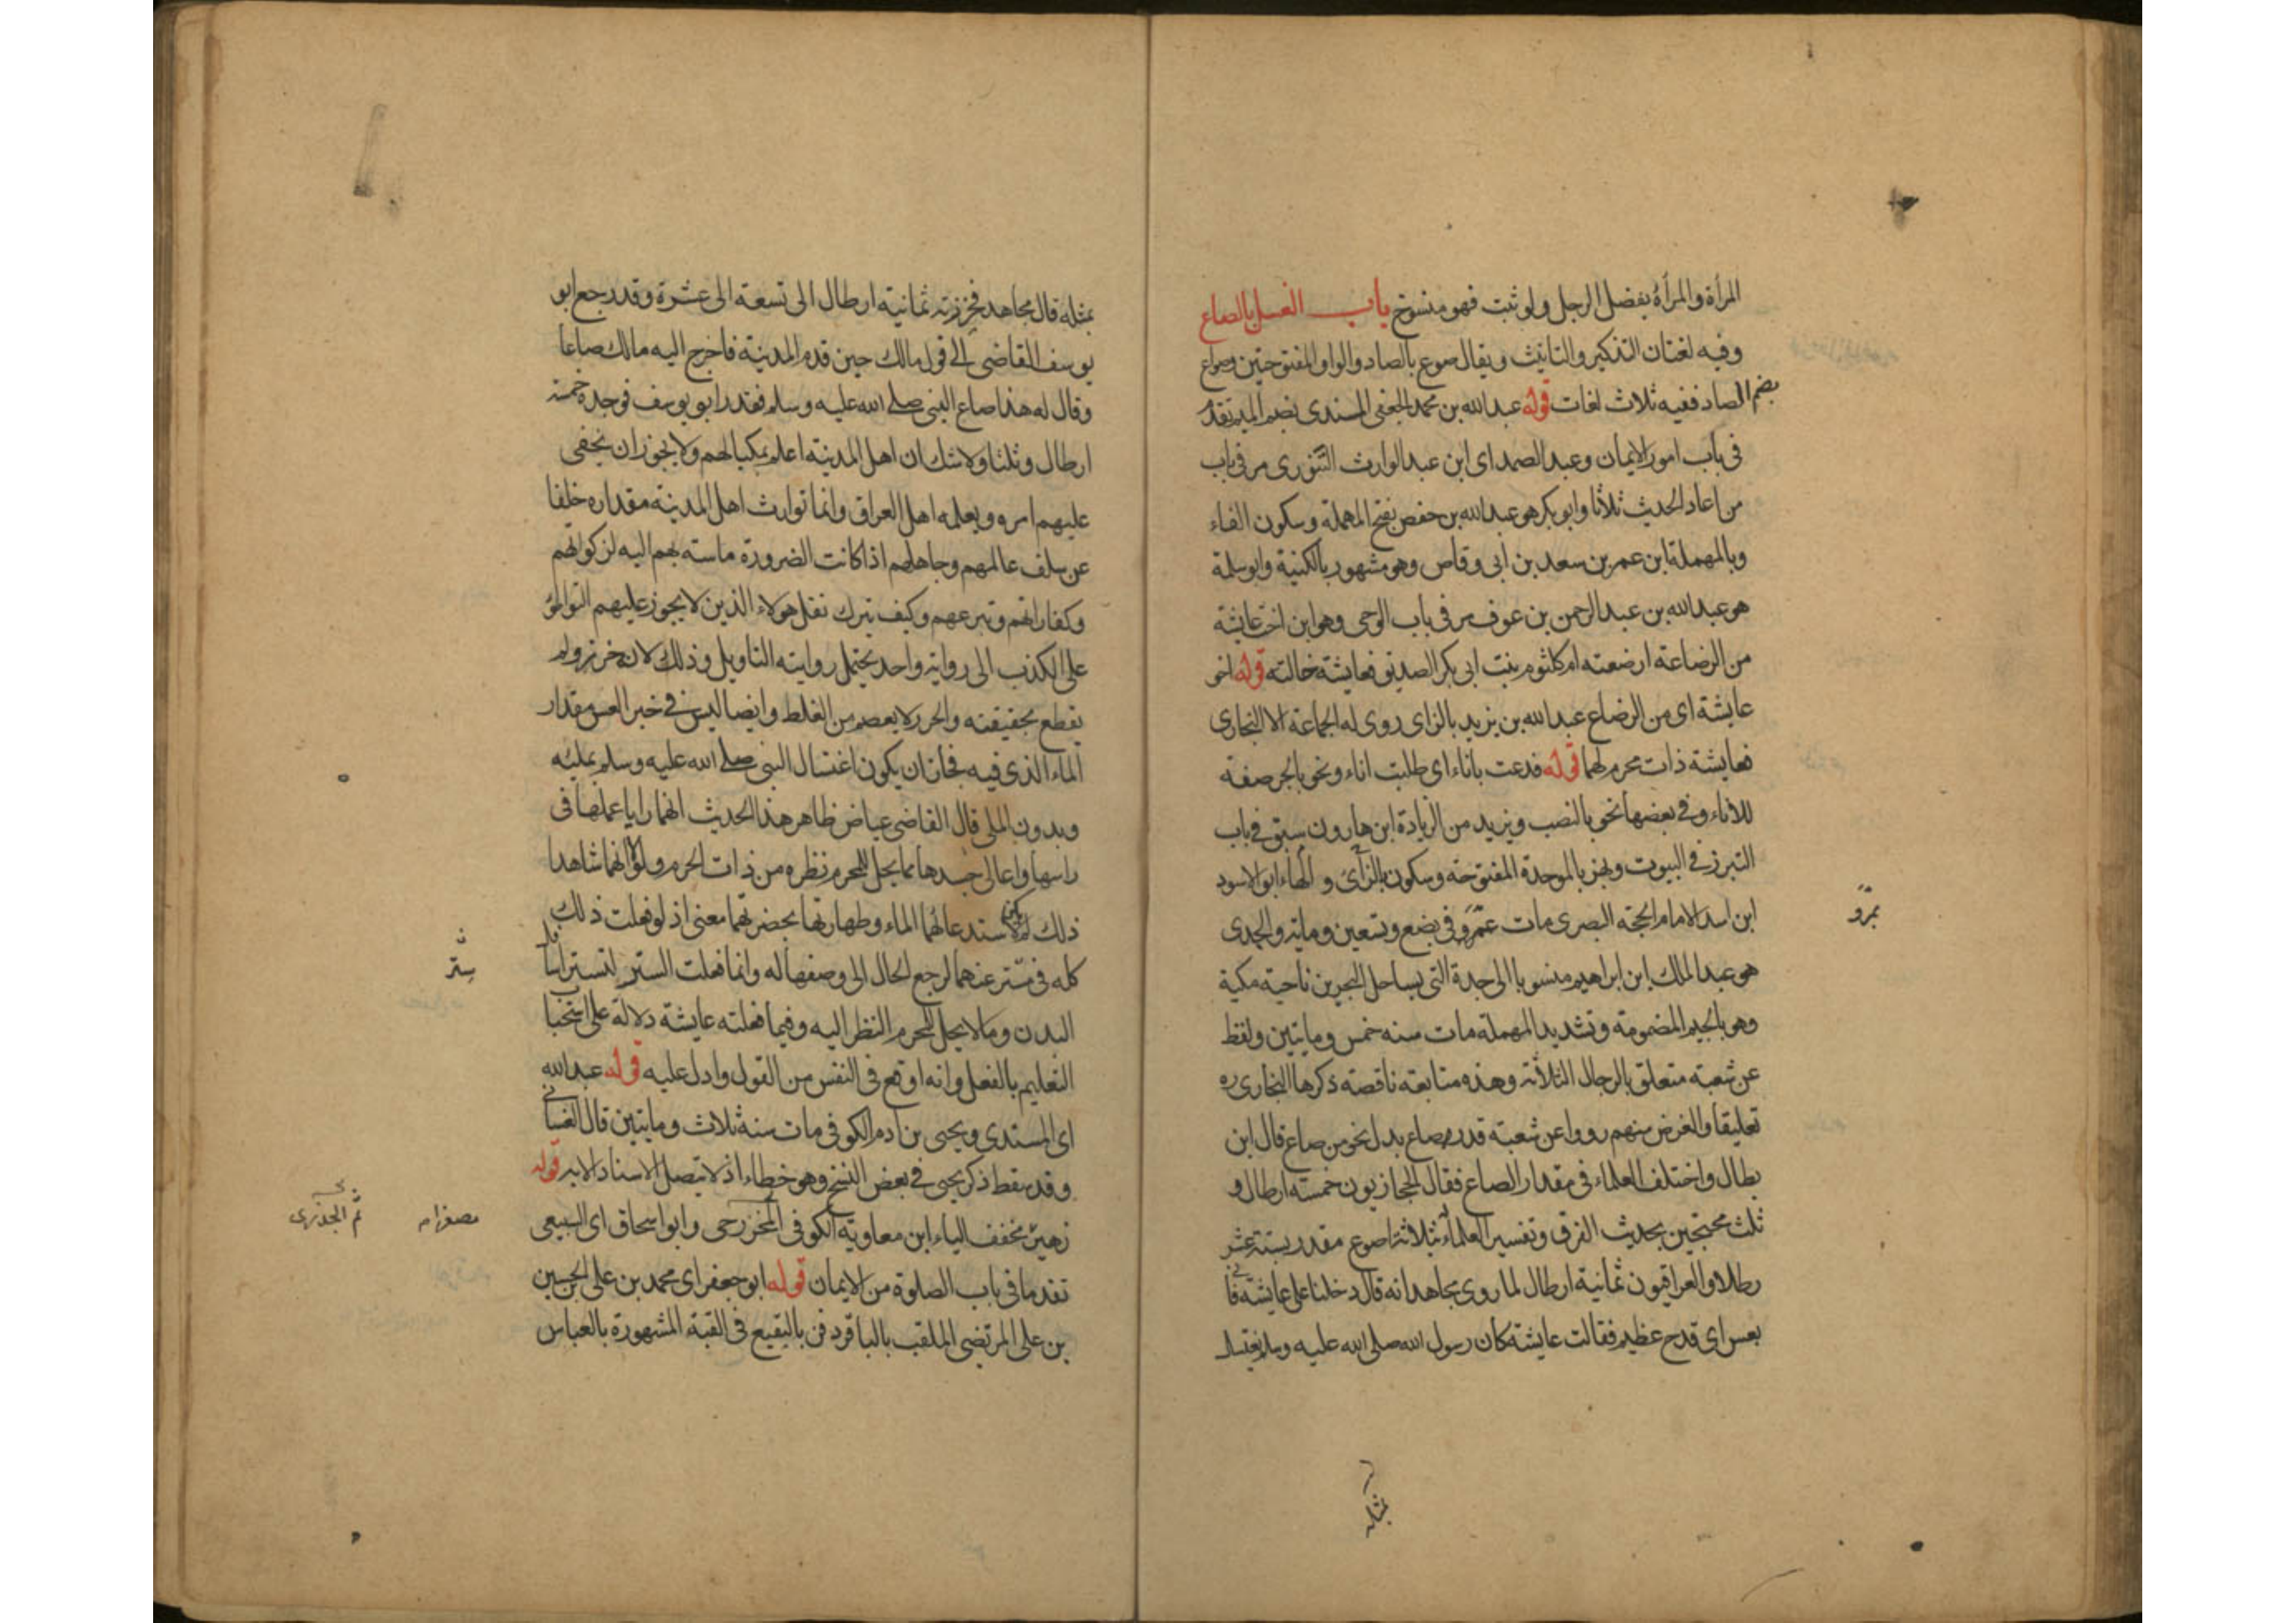 المرأة والمرأة بفضل الرجل ولو ثبت فهو منسوخ باب الغسل بالصاع
وفيه لغتان التذكير والتانيث ويقال صوع بالصاد والواو المفتوحتين وصواع
بضم الصاد ففيه ثلاث لغات قوله عبد الله بن محمد الجعفى المسندى بضم الميم تقدم
فى باب امور الايمان وعبد الصمد اى ابن عبد الوارث التنورى مر فى باب
من اعاد الحديث ثلاثا وابو بكر هو عبد الله بن حفص بفتح المهملة وسكون الفاء
وبالمهملة ابن عمر بن سعد بن ابى وقاص وهو مشهور بالكنية وابو سلمة
هو عبد الله بن عبد الرحمن بن عوف مر فى باب الوحى وهو ابن اخت عايشة
من الرضاعة ارضعته ام كلثوم بنت ابى بكر الصديق فعايشة خالته قوله اخو
عايشة اى من الرضاع عبد الله بن يزيد بالزاى روى له الجماعة الا البخارى
فعايشة ذات محرم لهما قوله فدعت باناء اى طلبت اناء ونحو بالجر صفة
للاناء وفى بعضها نحو بالنصب ويزيد من الزيادة ابن هارون سبق فى باب
التبرز فى البيوت وبهز بالموحدة المفتوحة وسكون الهاء وبالزاى ابو الاسود
ابن اسد الامام الحجة البصرى مات بمرو فى بضع وتسعين وماية والجدى
هو عبد الملك ابن ابراهيم منسوبا الى جدة التى بساحل البحر من ناحية مكية
وهو بالجيم المضمومة وتشديد المهملة مات سنه خمس ومايتين ولفظ
عن شعبة متعلق بالرجال الثلاثة وهذه متابعة ناقصة ذكرها البخارى ره
تعليقا والغرض منهم رووا عن شعبة قدر صاع بدل نحو من صاع قال ابن
بطال واختلف العلماء فى مقدار الصاع فقال الحجازيون خمسة ارطال و
ثلث محتجين بحديث الفرق وتفسير العلماء ثلاثة اصوع مقدر بستة عشر
رطلا والعراقيون ثمانية ارطال لما روى مجاهد انه قال دخلنا على عايشة فاتى
بعس اى قدح عظيم فقالت عايشة كان رسول الله صلى الله عليه وسلم يغتسل
بمرو
بمثله
بمثله قال مجاهد فحزرته ثمانية ارطال الى تسعة الى عشرة وقد رجع ابو
يوسف القاضى الى قول مالك حين قدم المدينة فاخرج اليه مالك صاعا
وقال له هذا صاع النبى صلى الله عليه وسلم فقدر ابو يوسف فوجده خمسة
ارطال وثلثا ولا شك ان اهل المدينة اعلم بمكيالهم ولا يجوز ان يخفى
عليهم امره ويعلمه اهل العراق وانما توارث اهل المدينة مقداره خلفا
عن سلف عالمهم وجاهلهم اذا كانت الضرورة ماسته بهم اليه لزكواتهم
وكفاراتهم وتبرعهم وكيف يترك نقل هولاء الذين لا يجوز عليهم التواطؤ
على الكذب الى رواية واحد يحتمل روايته التاويل وذلك لانه حزر ولم
يقطع بحقيقته والحزر لا يعصم من الغلط وايضا ليس فى خبر العس مقدار
الماء الذى فيه فجاز ان يكون اغتسال النبى صلى الله عليه وسلم بمليه
وبدون الملى قال القاضى عياض ظاهر هذا الحديث انهما رايا عملها فى
راسها واعالى جسدها مما يحل للمحرم نظره من ذات الحرم ولولا انهما شاهدا
ذلك لم يكن لاستدعائها الماء وطهارتها بحضرتهما معنى اذ لو فعلت ذلك
كله فى ستر عنهما لرجع الحال الى وصفها له وانما فعلت الستر لتستر اسافل
البدن وما لا يحل للمحرم النظر اليه وفيما فعلته عايشة دلالة على استحباب
التعليم بالفعل وانه اوقع فى النفس من القول وادل عليه قوله عبد الله
اى المسندى ويحيى بن ادم الكوفى مات سنة ثلاث ومايتين قال الغسانى
وقد سقط ذكر يحيى فى بعض النسخ وهو خطاء اذ لا يتصل الاسناد الا به قوله
زهير مخفف الياء ابن معاوية الكوفى ثم الجزرى وابو اسحاق اى السبيعى
تقدما فى باب الصلوة من الايمان قوله ابو جعفر اى محمد بن على الحسين
بن على المرتضى الملقب بالباقر دفن بالبقيع فى القبة المشهورة بالعباس
ستر